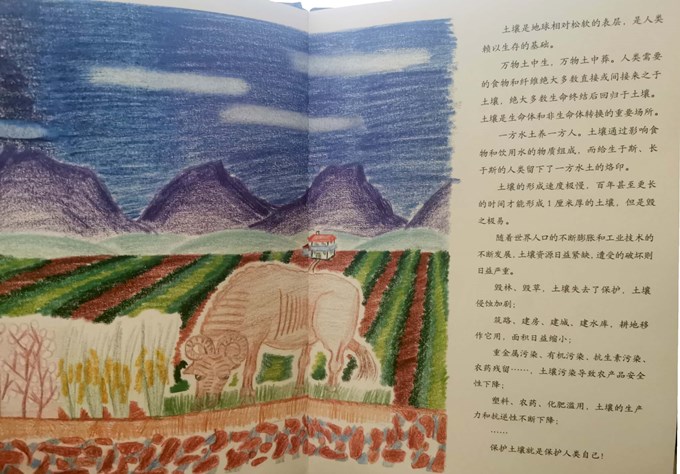 土壤是地球相对松软的表层，是人类
赖以生存的基础。
万物土中生，万物土中葬。人类需要
的食物和纤维绝大多数直接或间接来之于
土壤，绝大多数生命终结后回归于土壤。
土壤是生命体和非生命体转换的重要场所。
一方水土养一方人。土壤通过影响食
物和饮用水的物质组成，而给生于斯、长
于斯的人类留下了一方水土的烙印。
土壤的形成速度极慢，百年甚至更长
的时间才能形成1厘米厚的土壤，但是毁
之极易。
随着世界人口的不断膨胀和工业技术的
不断发展，土壤资源日益紧缺，遭受的破坏则
日益严重。
毁林、毁草，土壤失去了保护，土壤
侵蚀加剧；
筑路、建房、建城、建水库，耕地移
作它用，面积日益缩小；
重金属污染、有机污染、抗生素污染、
农药残留……，土壤污染导致农产品安全
性下降；
塑料、农药、化肥滥用，土壤的生产
力和抗逆性不断下降；
……
保护土壤就是保护人类自己！